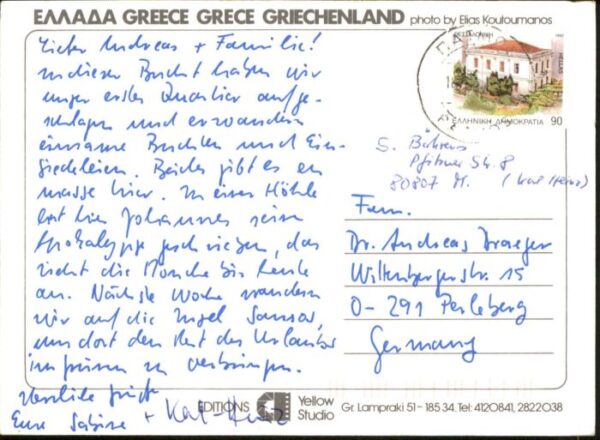 ΕΛΛΑΔΑ GREECE GRECE GRIECHENLAND photo by Elias Koutoumanos
Lieber Andreas + Familie!
In dieser Bucht haben wir
unser erstes Quartier aufge-
schlagen und erwandern
einsame Buchten und Ein-
siedeleien. Beides gibt es en
masse hier. In einer Höhle
hat hier Johannes seine
Apokalypse geschrieben, das
zieht die Mönche bis heute
an. Nächste Woche wandern
wir auf die Insel Samos,
um dort den Rest des Urlaubs
im grünen zu verbringen.
Herzliche Grüße
Eure Sabine + Karl-Heinz
ΘΕΣΣΑΛΟΝΙΚΗ 1992
ΕΛΛΗΝΙΚΗ ΔΗΜΟΚΡΑΤΙΑ 90
S.
Pfitzner Str. 8
80807 M. (Karl Heinz)
Fam.
Dr. Andreas Draeger
Wittenbergerstr. 15
O-291 Perleberg
Germany
EDITIONS Yellow Studio Gr. Lampraki 51 - 185 34. Tel: 4120841, 2822038